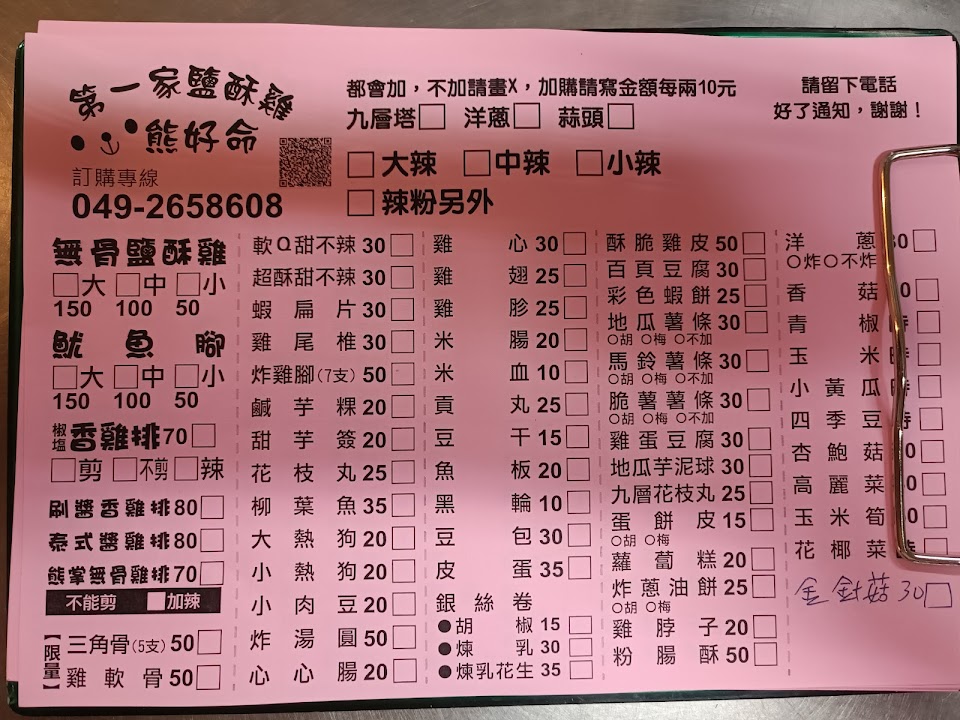 第一家鹽酥雞
熊好命
訂購專線
049-2658608
都會加，不加請畫X，加購請寫金額每兩10元
九層塔□ 洋蔥□ 蒜頭□
□大辣 □中辣 □小辣
□辣粉另外
請留下電話
好了通知，謝謝！
無骨鹽酥雞
□大 □中 □小
150 100 50
魷魚腳
□大 □中 □小
150 100 50
椒塩香雞排70□
□剪 □不剪 □辣
刷醬香雞排80□
泰式醬雞排80□
熊掌無骨雞排70□
不能剪 □加辣
【限量】
三角骨(5支)50□
雞軟骨50□
軟Q甜不辣30□
超酥甜不辣30□
蝦扁片30□
雞尾椎30□
炸雞腳(7支)50□
鹹芋粿20□
甜芋簽20□
花枝丸25□
柳葉魚35□
大熱狗20□
小熱狗20□
小肉豆20□
炸湯圓50□
心心腸20□
雞心30□
雞翅25□
雞胗25□
米腸20□
米血10□
貢丸25□
豆干15□
魚板20□
黑輪10□
豆包30□
皮蛋35□
銀絲卷
●胡椒15□
●煉乳30□
●煉乳花生35□
酥脆雞皮50□
百頁豆腐30□
彩色蝦餅25□
地瓜薯條30□
○胡 ○梅 ○不加
馬鈴薯條30□
○胡 ○梅 ○不加
脆薯薯條30□
○胡 ○梅 ○不加
雞蛋豆腐30□
地瓜芋泥球30□
九層花枝丸25□
蛋餅皮15□
○胡 ○梅
蘿蔔糕20□
炸蔥油餅25□
○胡 ○梅
雞脖子20□
粉腸酥50□
洋蔥30□
○炸○不炸
香菇□
青椒□
玉米□
小黃瓜□
四季豆□
杏鮑菇□
高麗菜□
玉米筍□
花椰菜□
金針菇30□